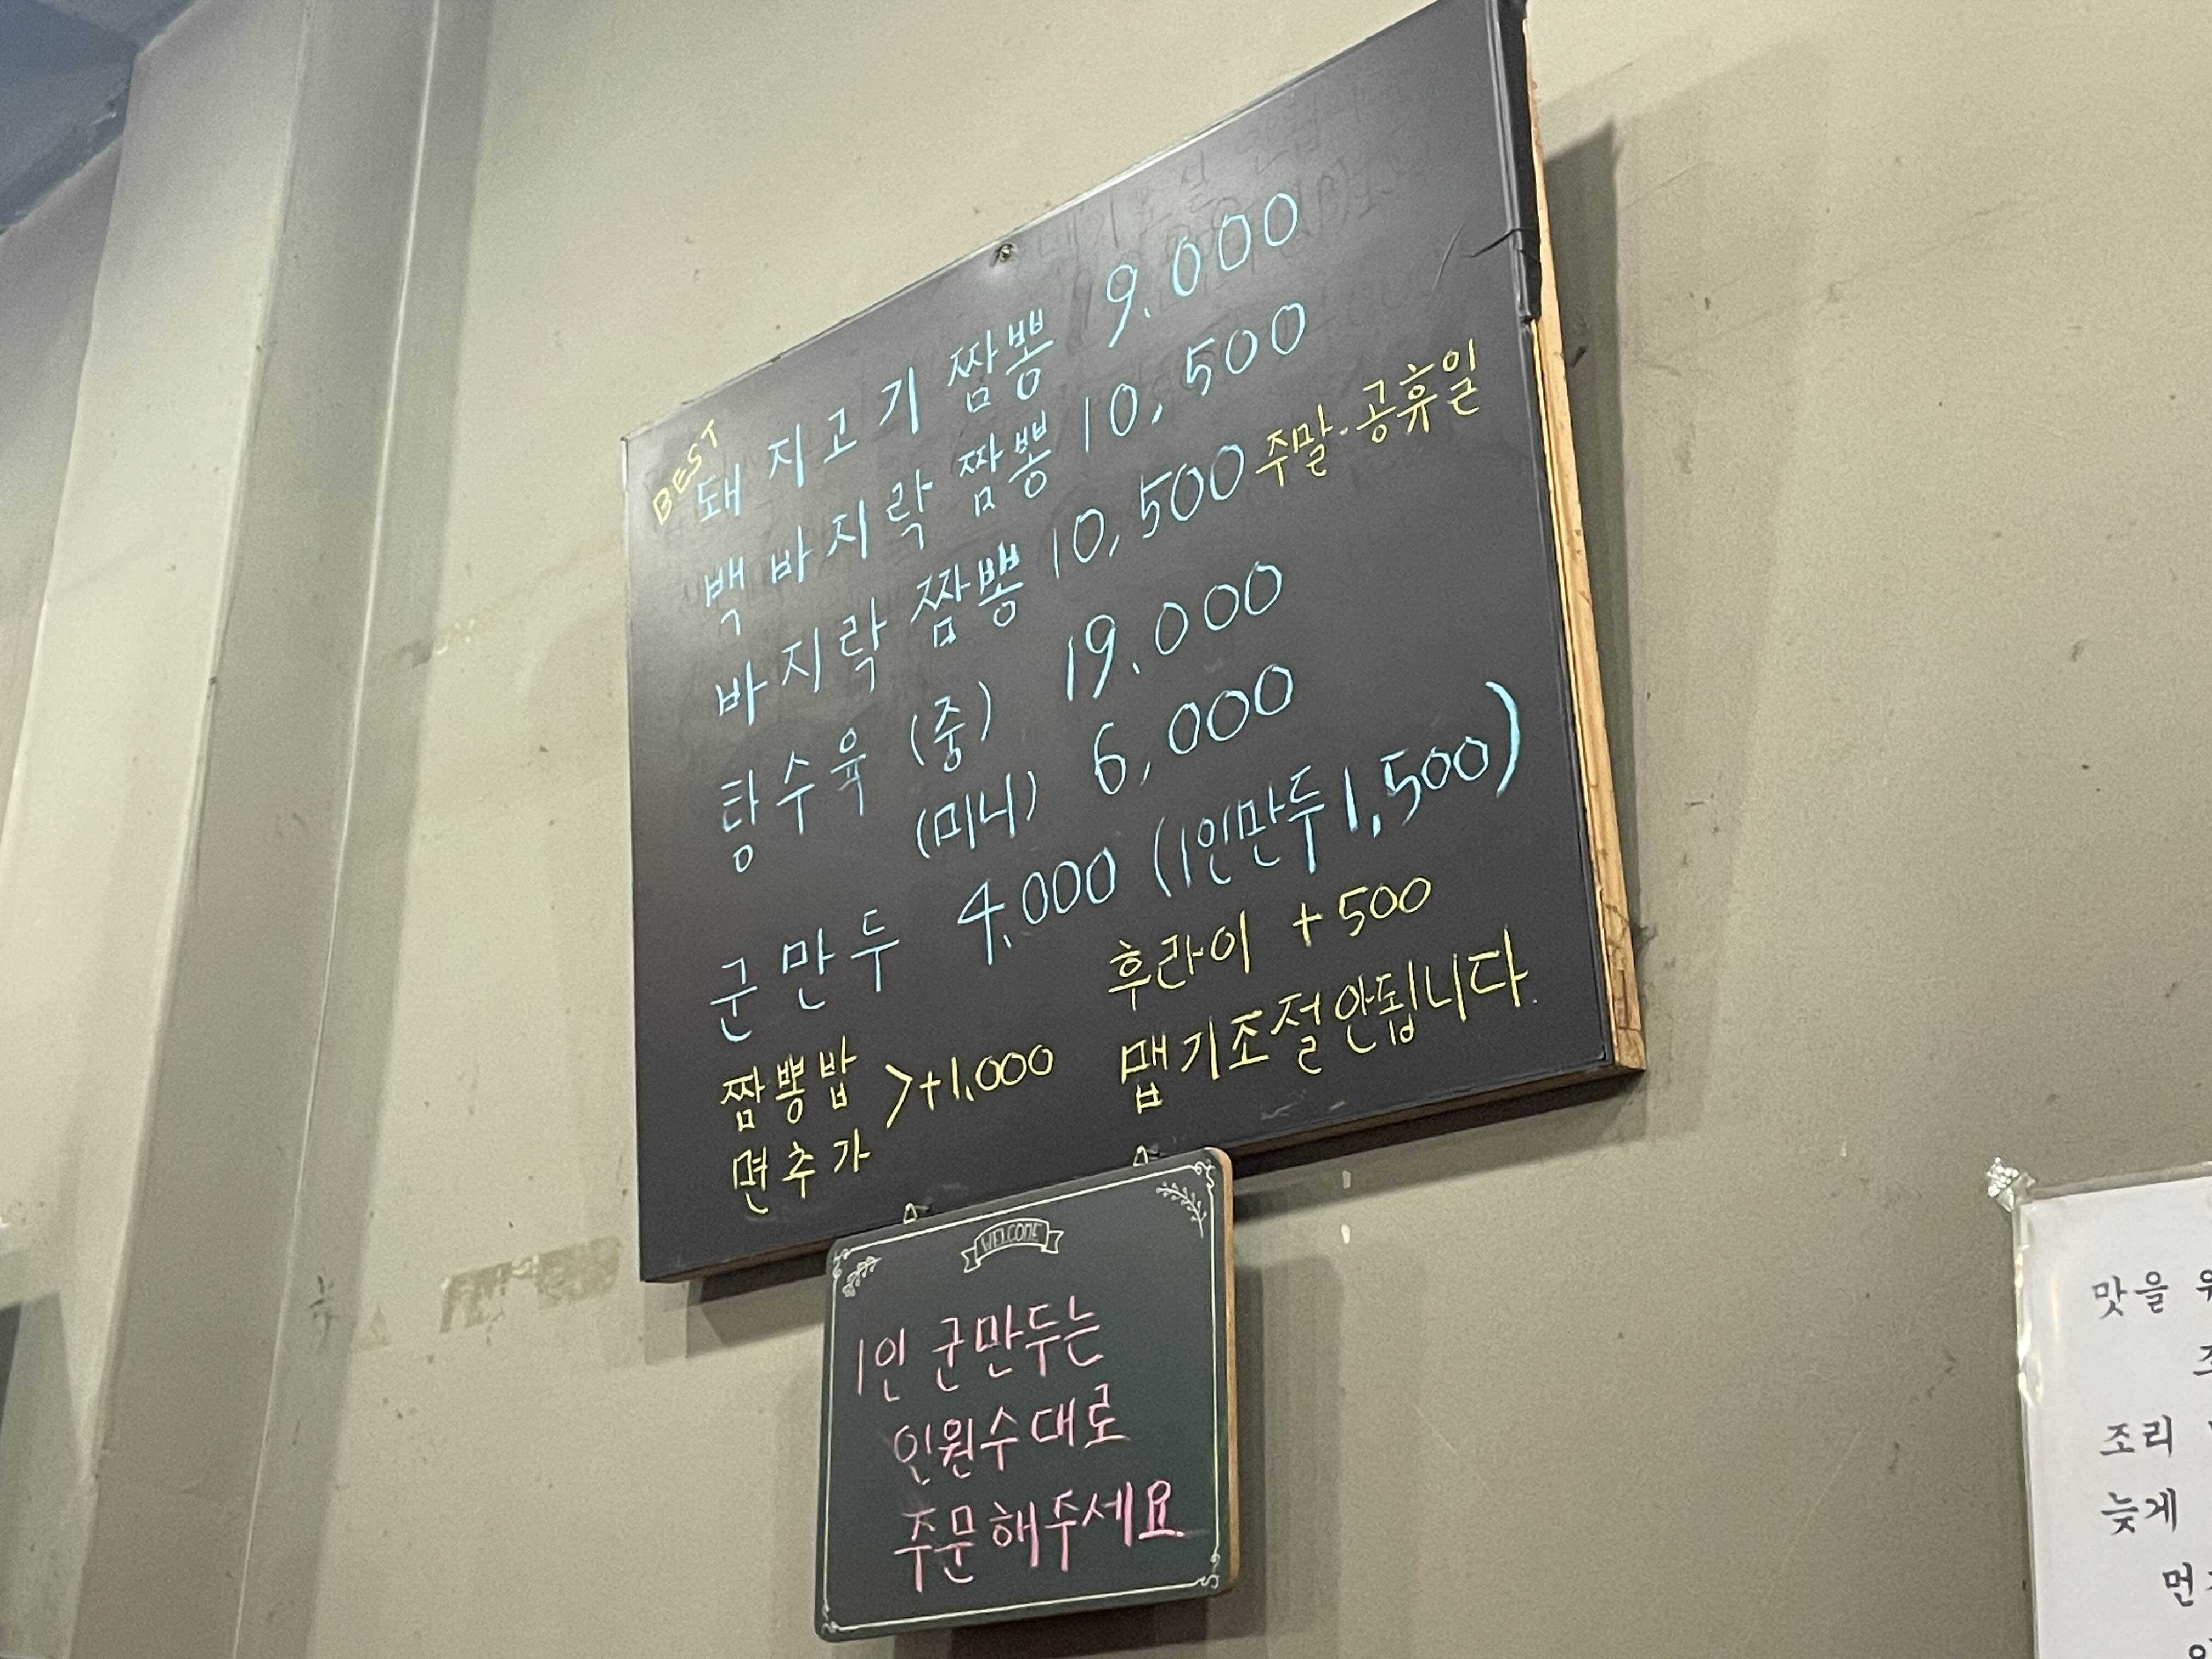 BEST
돼지고기 짬뽕 9.000
백바지락 짬뽕 10,500
바지락 짬뽕 10,500 주말·공휴일
탕수육 (중) 19.000
(미니) 6,000
군만두 4,000 (1인만두 1,500)
후라이 +500
짬뽕밥
면추가
>+1,000
맵기조절안됩니다.
WELCOME
1인 군만두는
인원수대로
주문해주세요.
맛을
조리
늦게